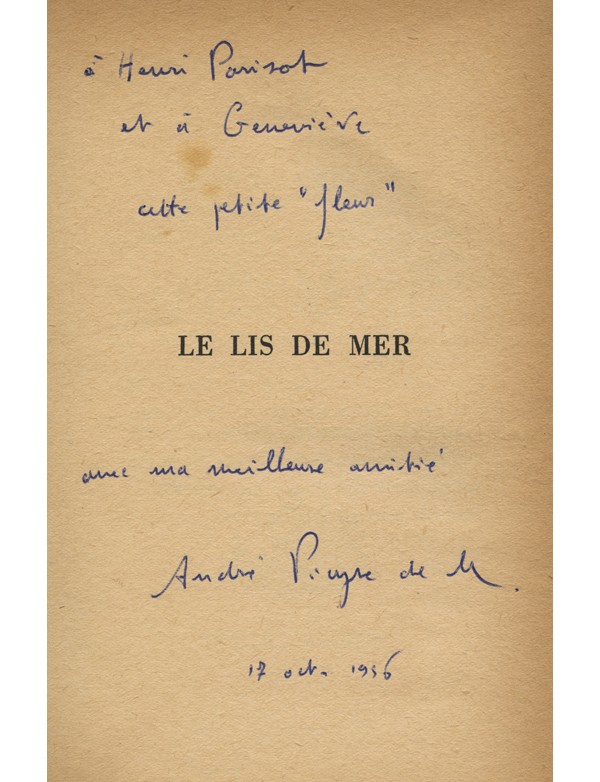 à Henri Parisot
et à Geneviève
cette petite "fleur"
LE LIS DE MER
avec ma meilleure amitié
André Pieyre de M.
17 oct. 1956